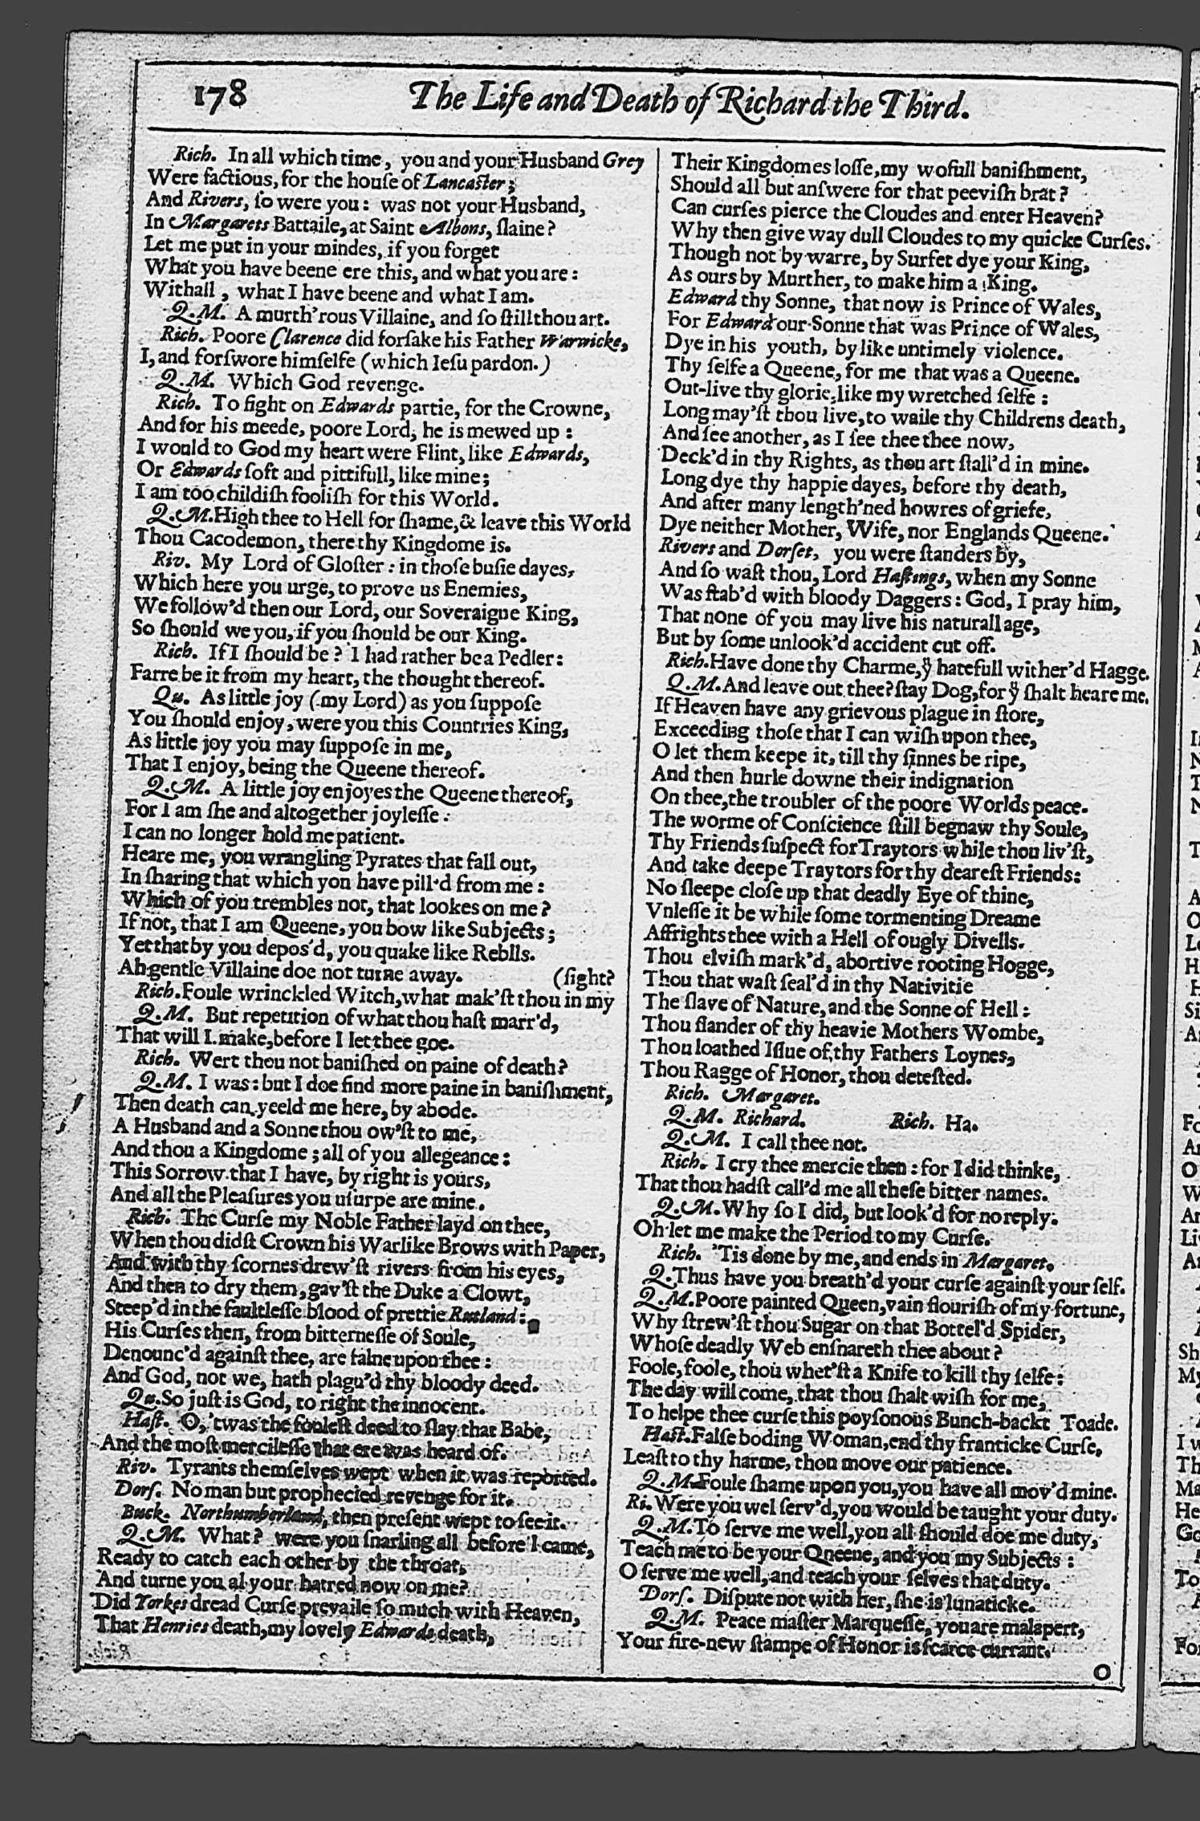 178
The Life and Death of Richard the Third.
Rich. In all which time, you and your Husband Grey
Were factious, for the house of Lancaster;
And Rivers, so were you: was not your Husband,
In Margarets Battaile, at Saint Albons, slaine?
Let me put in your mindes, if you forget
What you have beene ere this, and what you are:
Withall, what I have beene and what I am.
Q.M. A murth'rous Villaine, and so still thou art.
Rich. Poore Clarence did forsake his Father Warwicke,
I, and forswore himselfe (which Iesu pardon.)
Q.M. Which God revenge.
Rich. To fight on Edwards partie, for the Crowne,
And for his meede, poore Lord, he is mewed up:
I would to God my heart were Flint, like Edwards,
Or Edwards soft and pittifull, like mine;
I am too childish foolish for this World.
Q.M. High thee to Hell for shame, & leave this World
Thou Cacodemon, there thy Kingdome is.
Riv. My Lord of Gloster: in those busie dayes,
Which here you urge, to prove us Enemies,
We follow'd then our Lord, our Soveraigne King,
So should we you, if you should be our King.
Rich. If I should be? I had rather be a Pedler:
Farre be it from my heart, the thought thereof.
Qu. As little joy (my Lord) as you suppose
You should enjoy, were you this Countries King,
As little joy you may suppose in me,
That I enjoy, being the Queene thereof.
Q.M. A little joy enjoyes the Queene thereof,
For I am she and altogether joylesse:
I can no longer hold me patient.
Heare me, you wrangling Pyrates that fall out,
In sharing that which yon have pill'd from me:
Which of you trembles not, that lookes on me?
If not, that I am Queene, you bow like Subjects;
Yet that by you depos'd, you quake like Reblls.
Ah gentle Villaine doe not turne away. (sight?
Rich. Foule wrinckled Witch, what mak'st thou in my
Q.M. But repetition of what thou hast marr'd,
That will I make, before I let thee goe.
Rich. Wert thou not banished on paine of death?
Q.M. I was: but I doe find more paine in banishment,
Then death can yeeld me here, by abode.
A Husband and a Sonne thou ow'st to me,
And thou a Kingdome; all of you allegeance:
This Sorrow that I have, by right is yours,
And all the Pleasures you usurpe are mine.
Rich. The Curse my Noble Father layd on thee,
When thou didst Crown his Warlike Brows with Paper,
And with thy scornes drew'st rivers from his eyes,
And then to dry them, gav'st the Duke a Clowt,
Steep'd in the faultlesse blood of prettie Rutland:
His Curses then, from bitternesse of Soule,
Denounc'd against thee, are falne upon thee:
And God, not we, hath plagu'd thy bloody deed.
Qu. So just is God, to right the innocent.
Hast. O, 'twas the foolest deed to slay that Babe,
And the most mercilesse that ere was heard of.
Riv. Tyrants themselves wept when it was reported.
Dors. No man but prophecied revenge for it.
Buck. Northumberland, then present wept to see it.
Q.M. What? were you snarling all before I came,
Ready to catch each other by the throat,
And turne you al your hatred now on me?
Did Yorkes dread Curse prevaile so much with Heaven,
That Henries death, my lovely Edwards death,
Their Kingdomes losse, my wofull banishment,
Should all but answere for that peevish brat?
Can curses pierce the Cloudes and enter Heaven?
Why then give way dull Cloudes to my quicke Curses.
Though not by warre, by Surfet dye your King,
As ours by Murther, to make him a King.
Edward thy Sonne, that now is Prince of Wales,
For Edward our Sonne that was Prince of Wales,
Dye in his youth, by like untimely violence.
Thy selfe a Queene, for me that was a Queene.
Out-live thy glorie, like my wretched selfe:
Long may'st thou live, to waile thy Childrens death,
And see another, as I see thee thee now,
Deck'd in thy Rights, as thou art stall'd in mine.
Long dye thy happie dayes, before thy death,
And after many length'ned howres of griefe,
Dye neither Mother, Wife, nor Englands Queene.
Rivers and Dorset, you were standers by,
And so wast thou, Lord Hastings, when my Sonne
Was stab'd with bloody Daggers: God, I pray him,
That none of you may live his naturall age,
But by some unlook'd accident cut off.
Rich. Have done thy Charme, ÿ hatefull wither'd Hagge.
Q.M. And leave out thee? stay Dog, for ÿ shalt heare me.
If Heaven have any grievous plague in store,
Exceeding those that I can wish upon thee,
O let them keepe it, till thy sinnes be ripe,
And then hurle downe their indignation
On thee, the troubler of the poore Worlds peace.
The worme of Conscience still begnaw thy Soule,
Thy Friends suspect for Traytors while thou liv'st,
And take deepe Traytors for thy dearest Friends:
No sleepe close up that deadly Eye of thine,
Vnlesse it be while some tormenting Dreame
Affrights thee with a Hell of ougly Divells.
Thou elvish mark'd, abortive rooting Hogge,
Thou that wast seal'd in thy Nativitie
The slave of Nature, and the Sonne of Hell:
Thou slander of thy heavie Mothers Wombe,
Thou loathed Issue of thy Fathers Loynes,
Thou Ragge of Honor, thou detested.
Rich. Margaret.
Q.M. Richard. Rich. Ha.
Q.M. I call thee not.
Rich. I cry thee mercie then: for I did thinke,
That thou hadst call'd me all these bitter names.
Q.M. Why so I did, but look'd for no reply.
Oh let me make the Period to my Curse.
Rich. 'Tis done by me, and ends in Margaret.
Q. Thus have you breath'd your curse against your self.
Q.M. Poore painted Queen, vain flourish of my fortune,
Why strew'st thou Sugar on that Bottel'd Spider,
Whose deadly Web ensnareth thee about?
Foole, foole, thou whet'st a Knife to kill thy selfe:
The day will come, that thou shalt wish for me,
To helpe thee curse this poysonous Bunch-backt Toade.
Hast. False boding Woman, end thy franticke Curse,
Least to thy harme, thou move our patience.
Q.M. Foule shame upon you, you have all mov'd mine.
Ri. Were you wel serv'd, you would be taught your duty.
Q.M. To serve me well, you all should doe me duty,
Teach me to be your Qneene, and you my Subjects:
O serve me well, and teach your selves that duty.
Dors. Dispute not with her, she is lunaticke.
Q.M. Peace master Marquesse, you are malapert,
Your fire-new stampe of Honor is scarce currant.
O